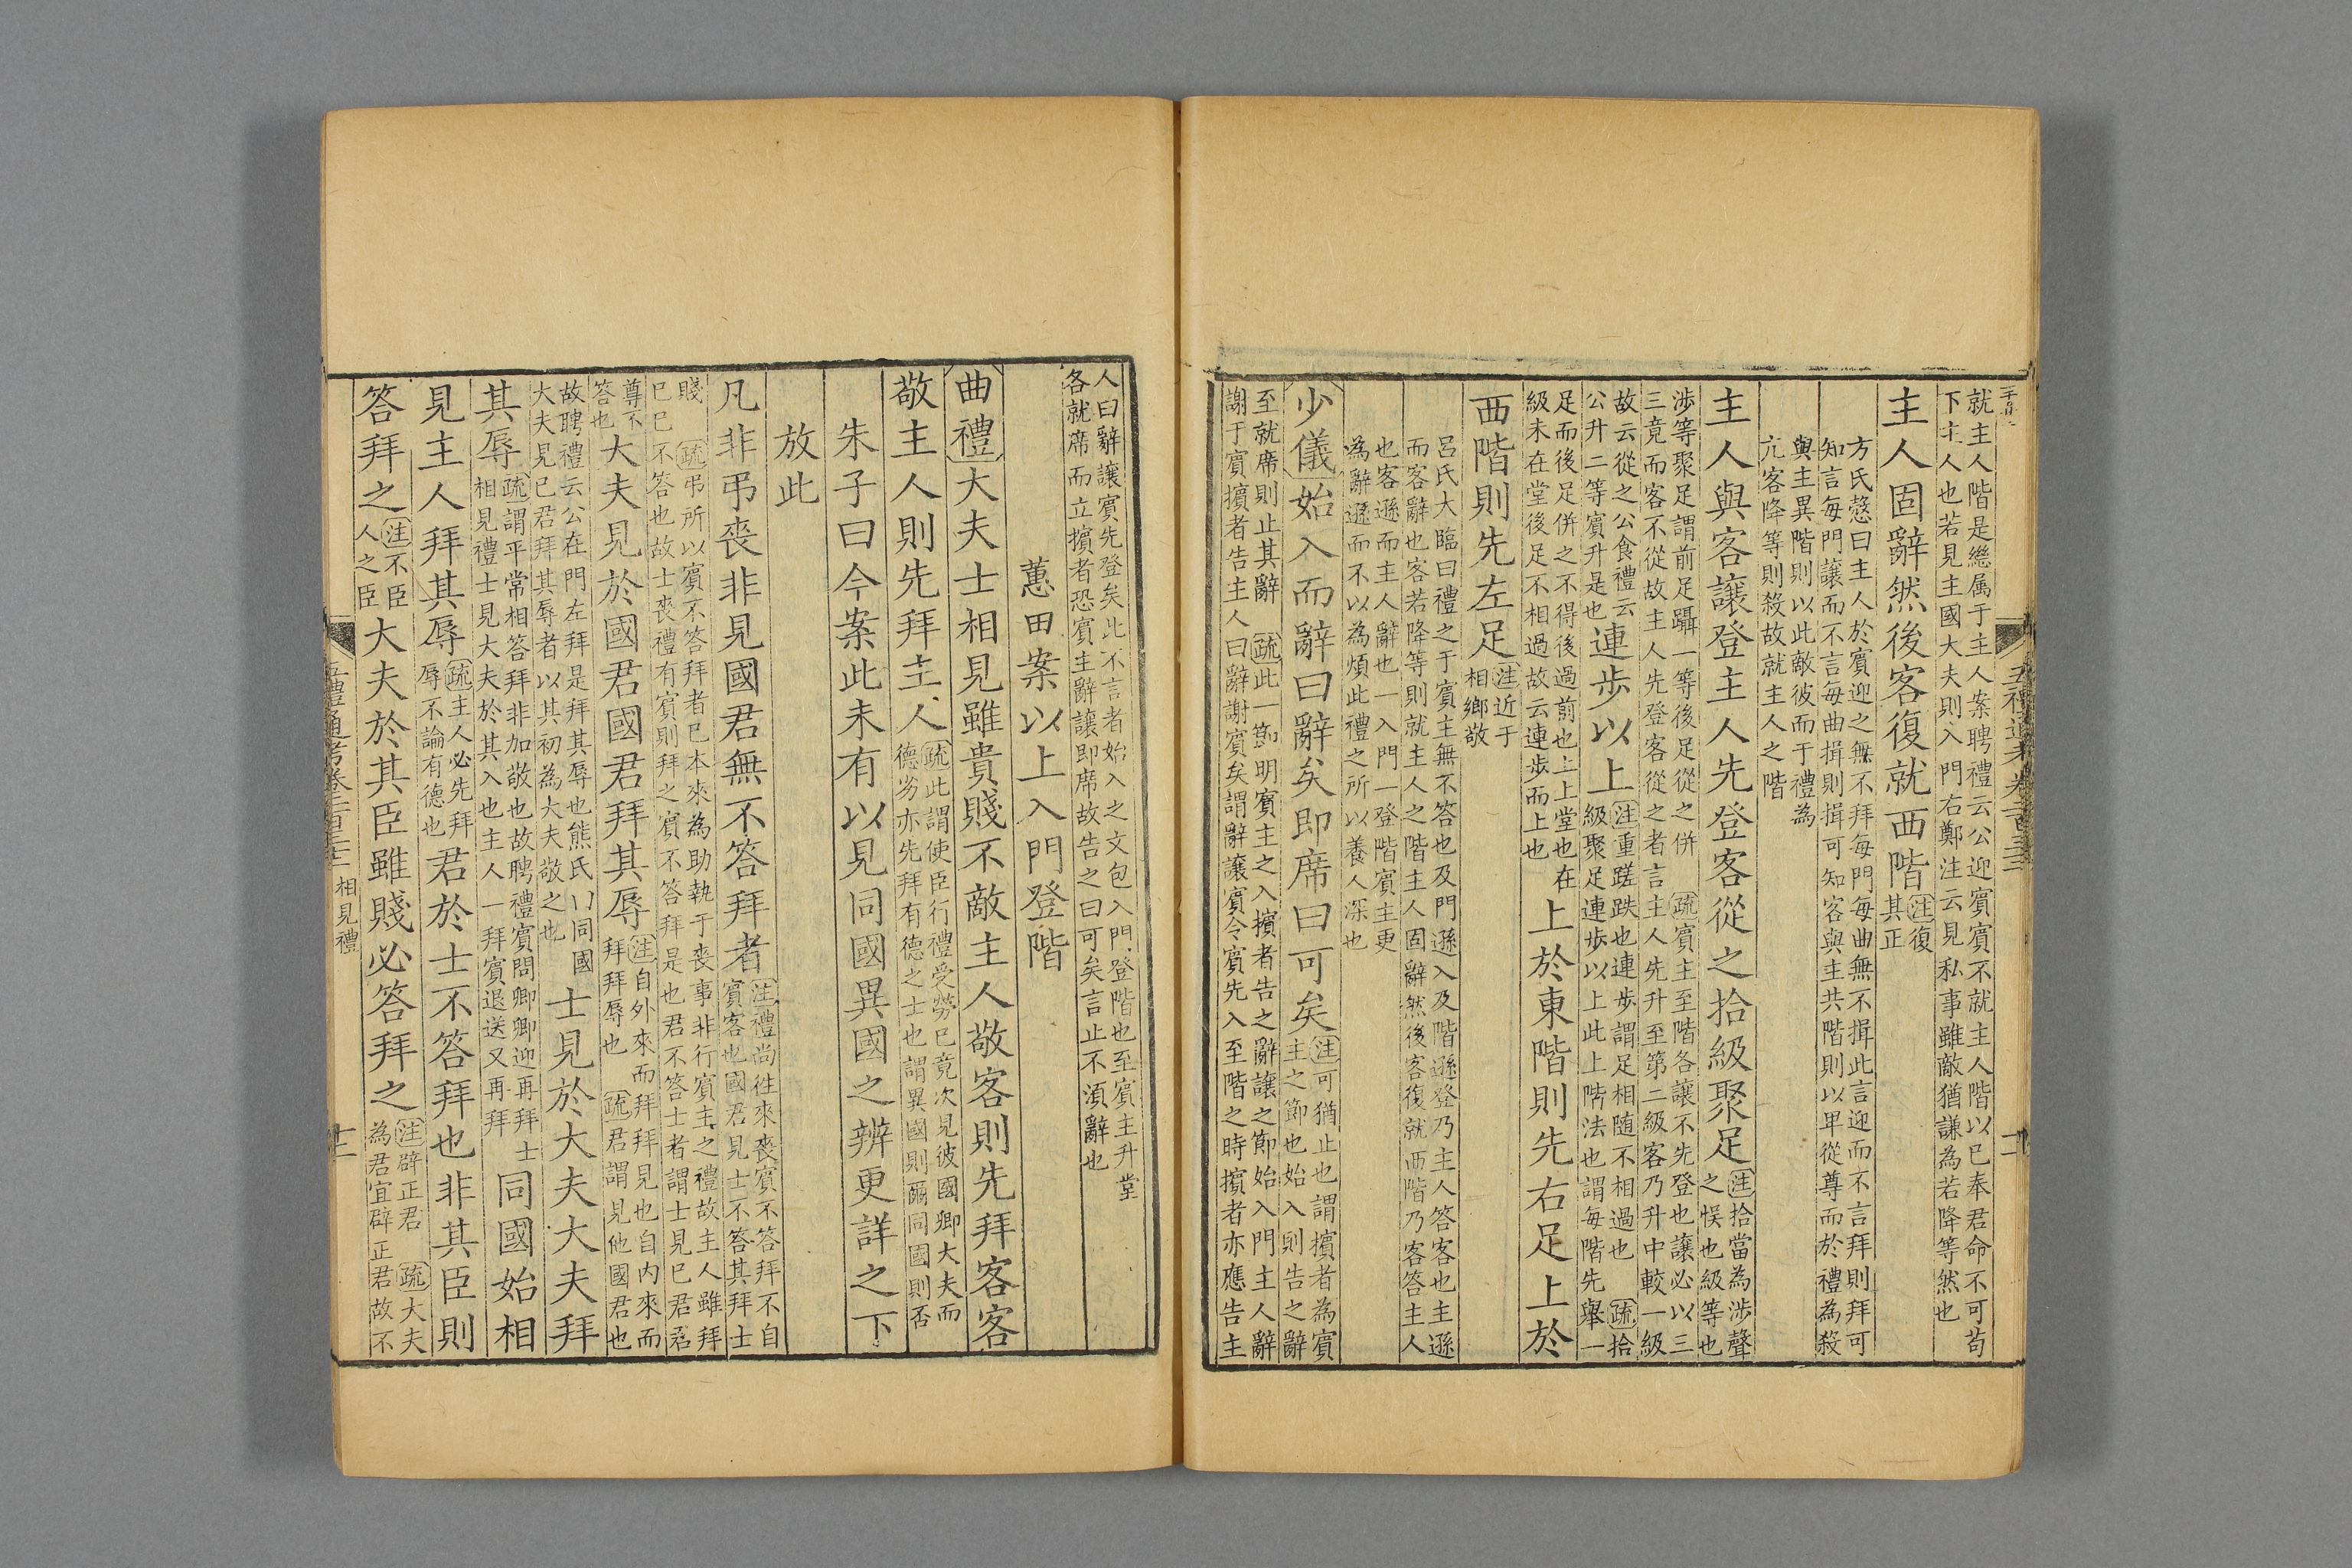 就主人階是繼属于主人案聘禮云公迎賓賓不就主人階以已奉君命不可苟
下主人也若見主國大夫則入門右鄭注云見私事雖敵猶謙為若降等然也
主人固辭然後客復就西階注復
其正
方氏慤曰主人於賓迎之無不拜每門每曲無不揖此言迎而不言拜則拜可
知言每門讓而不言每曲揖則揖可知客與主共階則以卑從尊而於禮為殺
與主異階則以此敵彼而于禮為
亢客降等則殺故就主人之階
主人與客讓登主人先登客從之拾級聚足注拾當為涉聲
之悮也級等也
涉等聚足謂前足躡一等後足從之併 疏賓主至階各讓不先登也讓必以三
三竟而客不從故主人先登客從之者言主人先升至第二級客乃升中較一級
故云從之公食禮云
公升二等賓升是也連步以上注重蹉跌也連步謂足相随不相過也 疏拾
級聚足連步以上此上階法也謂每階先舉一
足而後足併之不得後過前也上上堂也在
級未在堂後足不相過故云連步而上也上於東階則先右足上於
西階則先左足注近于
相鄉敬
呂氏大臨曰禮之于賓主無不答也及門遜入及階遜登乃主人答客也主遜
而客辭也客若降等則就主人之階主人固辭然後客復就西階乃客答主人
也客遜而主人辭也一入門一登階賓主更
為辭遜而不以為煩此禮之所以養人深也
少儀始入而辭曰辭矣即席曰可矣注可猶止也謂擯者為賓
主之節也始入則告之辭
至就席則止其辭 疏此一節明賓主之入擯者告之辭讓之節始入門主人辭
謝于賓擯者告主人曰辭謝賓矣謂辭讓賓令賓先入至階之時擯者亦應告主
五禮通考卷二百三十二
人曰辭讓賓先登矣此不言者始入之文包入門登階也至賓主升堂
各就席而立擯者恐賓主辭讓即席故告之曰可矣言止不須辭也
蕙田案以上入門登階
曲禮大夫士相見雖貴賤不敵主人敬客則先拜客客
敬主人則先拜主人疏此謂使臣行禮受勞已竟次見彼國卿大夫而
德劣亦先拜有德之士也謂異國則爾同國則否
朱子曰今案此未有以見同國異國之辨更詳之下
放此
凡非弔喪非見國君無不答拜者注禮尚徃來喪賓不答拜不自
賓客也國君見士不答其拜士
賤 疏弔所以賓不答拜者已本來為助執于喪事非行賓主之禮故主人雖拜
已已不答也故士喪禮有賓則拜之賓不答拜是也君不答士者謂士見已君君
尊不
答也大夫見於國君國君拜其辱注自外來而拜拜見也自内來而
拜拜辱也 疏君謂見他國君也
故聘禮云公在門左拜是拜其辱也熊氏以同國
大夫見已君拜其辱者以其初為大夫敬之也士見於大夫大夫拜
其辱疏謂平常相答拜非加敬也故聘禮賓問卿卿迎再拜士
相見禮士見大夫於其入也主人一拜賓退送又再拜同國始相
見主人拜其辱疏主人必先拜
辱不論有德也君於士不答拜也非其臣則
答拜之注不臣
人之臣大夫於其臣雖賤必答拜之注辟正君 疏大夫
為君宜辟正君故不
五禮通考卷二百三十二 相見禮
十二